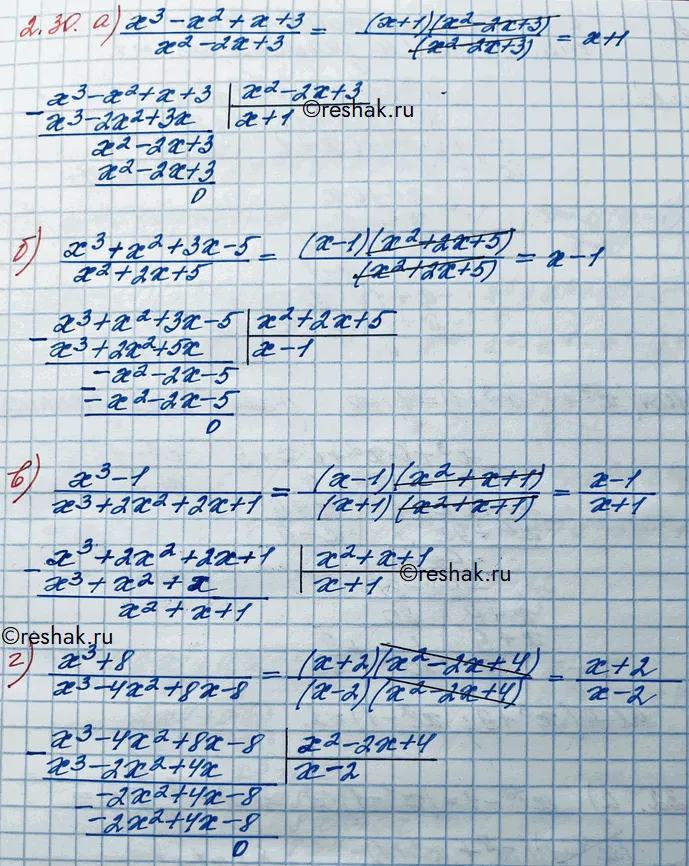 2.30. а) (x³ – x² + x + 3)/(x² – 2x + 3) = ((x+1)(x² – 2x + 3))/((x² – 2x + 3)) = x+1
– x³ – x² + x + 3 | x² – 2x + 3
x³ – 2x² + 3x | x + 1
©reshak.ru
x² – 2x + 3
x² – 2x + 3
0
б) (x³ + x² + 3x – 5)/(x² + 2x + 5) = ((x–1)(x² + 2x + 5))/((x² + 2x + 5)) = x – 1
– x³ + x² + 3x – 5 | x² + 2x + 5
x³ + 2x² + 5x | x – 1
– –x² – 2x – 5
– x² – 2x – 5
0
в) (x³ – 1)/(x³ + 2x² + 2x + 1) = ((x–1)(x² + x + 1))/((x+1)(x² + x + 1)) = (x–1)/(x+1)
– x³ + 2x² + 2x + 1 | x² + x + 1
x³ + x² + x | x + 1
©reshak.ru
x² + x + 1
©reshak.ru
г) (x³ + 8)/(x³ – 4x² + 8x – 8) = ((x+2)(x² – 2x + 4))/((x–2)(x² – 2x + 4)) = (x+2)/(x–2)
– x³ – 4x² + 8x – 8 | x² – 2x + 4
x³ – 2x² + 4x | x – 2
– –2x² + 4x – 8
–2x² + 4x – 8
0